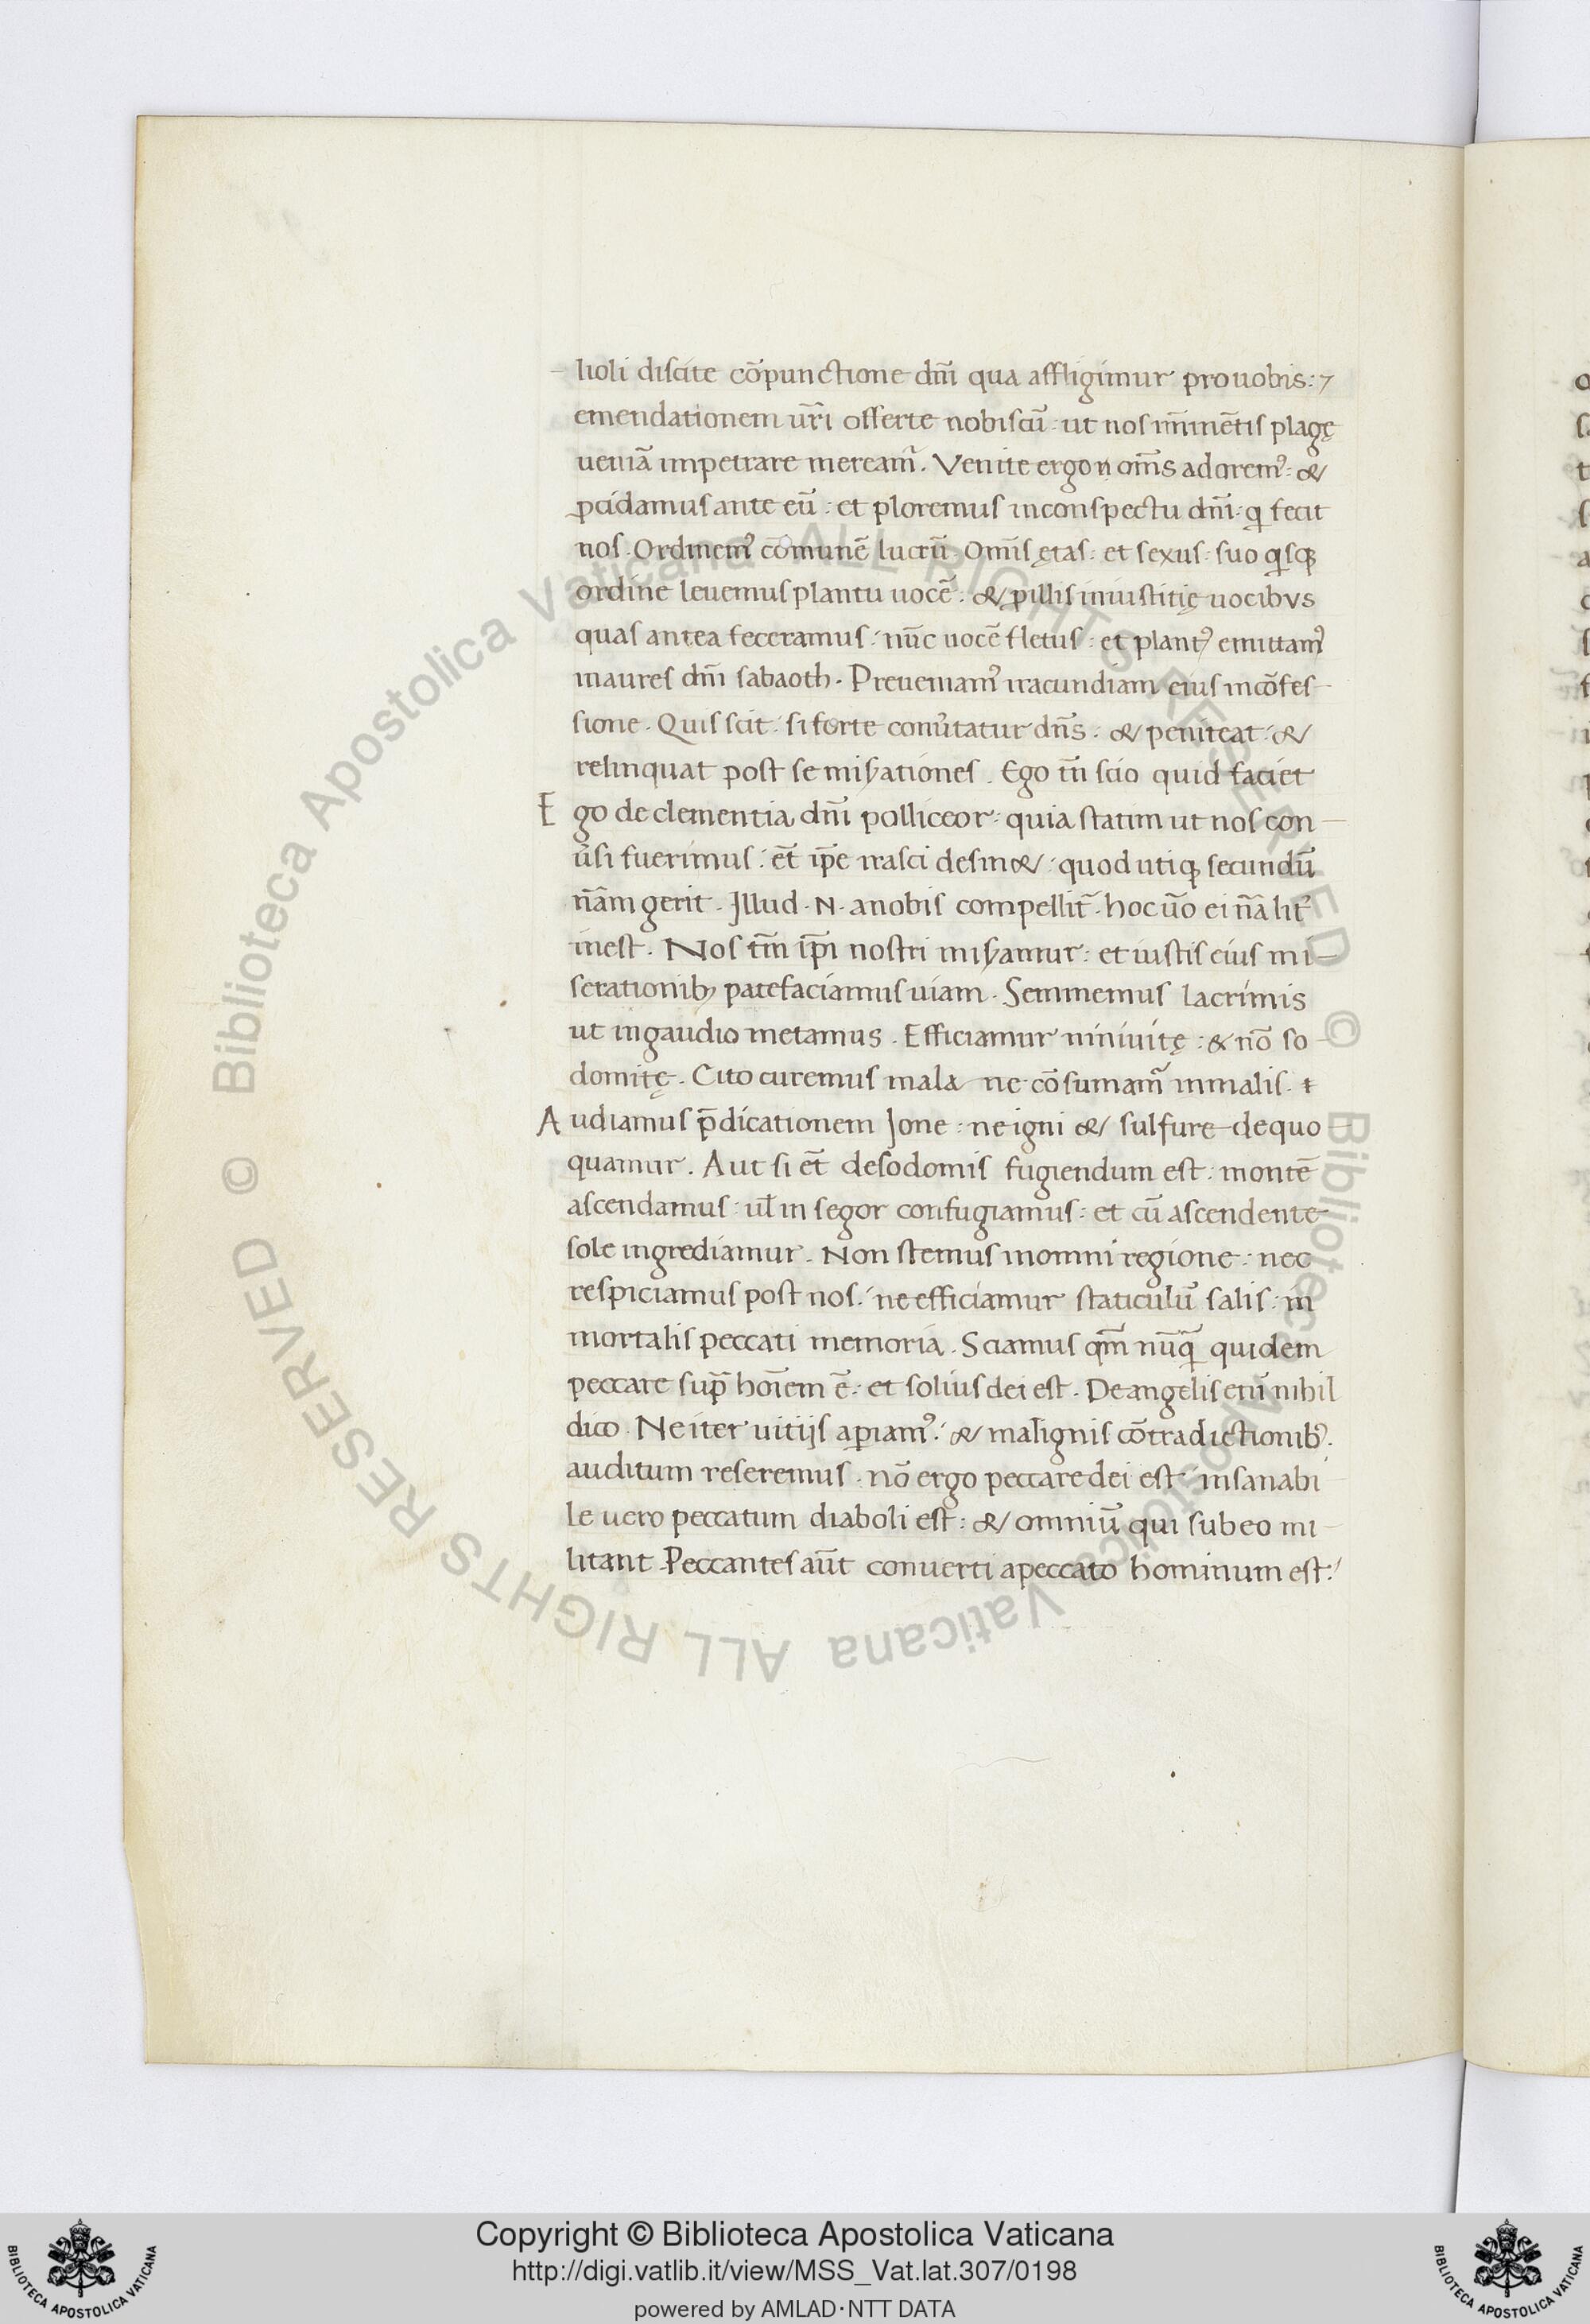 lioli discite cōpunctione dn̄i qua affligimur prouobis : ⁊
emendationem ur̄i offerte nobiscū : ut nos im̄inētis plagę
ueniā impetrare meream᷑ . Venite ergo om̄s adorem᷒ : &
ꝓcidamus ante eū : et ploremus inconspectu dn̄i : q fecit
nos . Ordinem᷒ cōmunē luctū . Om̄is ętas : et sexus : suo qsꝗ
ordine leuemus planctu uocē : & ꝓ illis iniustitię uocibus
quas antea feceramus : nūc uocē fletus : et planct᷒ emittam᷒
inaures dn̄i sabaoth . Preueniam᷒ iracundiam eius incōfes-
sione . Quis scit : si forte conu̓tatur dn̄s : & peniteat : &
relinquat post se mis̓ationes . Ego tn̄ scio quid faciet
Ego de clementia dn̄i polliceor : quia statim ut nos con-
u̓si fuerimus : et̄ ip̄e irasci desin& : quod utiqꝫ secundū
nām gerit . Illud . N . anobis compellit᷑ . hoc ūo ei nālit̓
inest . Nos tm̄ ip̄i nostri mis̓amur : et iustis eius mi-
serationibꝫ patefaciamus uiam . Seminemus lacrimis
ut ingaudio metamus . Efficiamur niniuitę : & nō so-
domitę . Cito curemus mala ne cōsumam᷑ inmalis .
Audiamus p̄dicationem Ione : ne igni & sulfure dequo
quamur . Aut si et̄ desodomis fugiendum est : montē
ascendamus : ul̄ in segor confugiamus : et cū ascendente
sole ingrediamur . Non stemus inomni regione : nec
respiciamus post nos : ne efficiamur staticulū salis : in
mortalis peccati memoria . Sciamus qm̄ nūq̄ quidem
peccare sup̄ hoīem ē : et solius dei est . De angelis etī nihil
dico . Ne iter uitijs aꝑiam᷒ : & malignis cōtradictionib᷒ .
auditum reseremus . nō ergo peccare dei est : insanabi-
le uero peccatum diaboli est : & omniū qui sub eo mi-
litant . Peccantes aūt conuerti apeccato hominum est :
Copyright © Biblioteca Apostolica Vaticana
http://digi.vatlib.it/view/MSS_Vat.lat.307/0198
powered by AMLAD·NTT DATA
BIBLIOTECA APOSTOLICA VATICANA
BIBLIOTECA APOSTOLICA VATICANA
© Biblioteca Apostolica Vaticana ALL RIGHTS RESERVED © Biblioteca Apostolica Vaticana ALL RIGHTS RESERVED